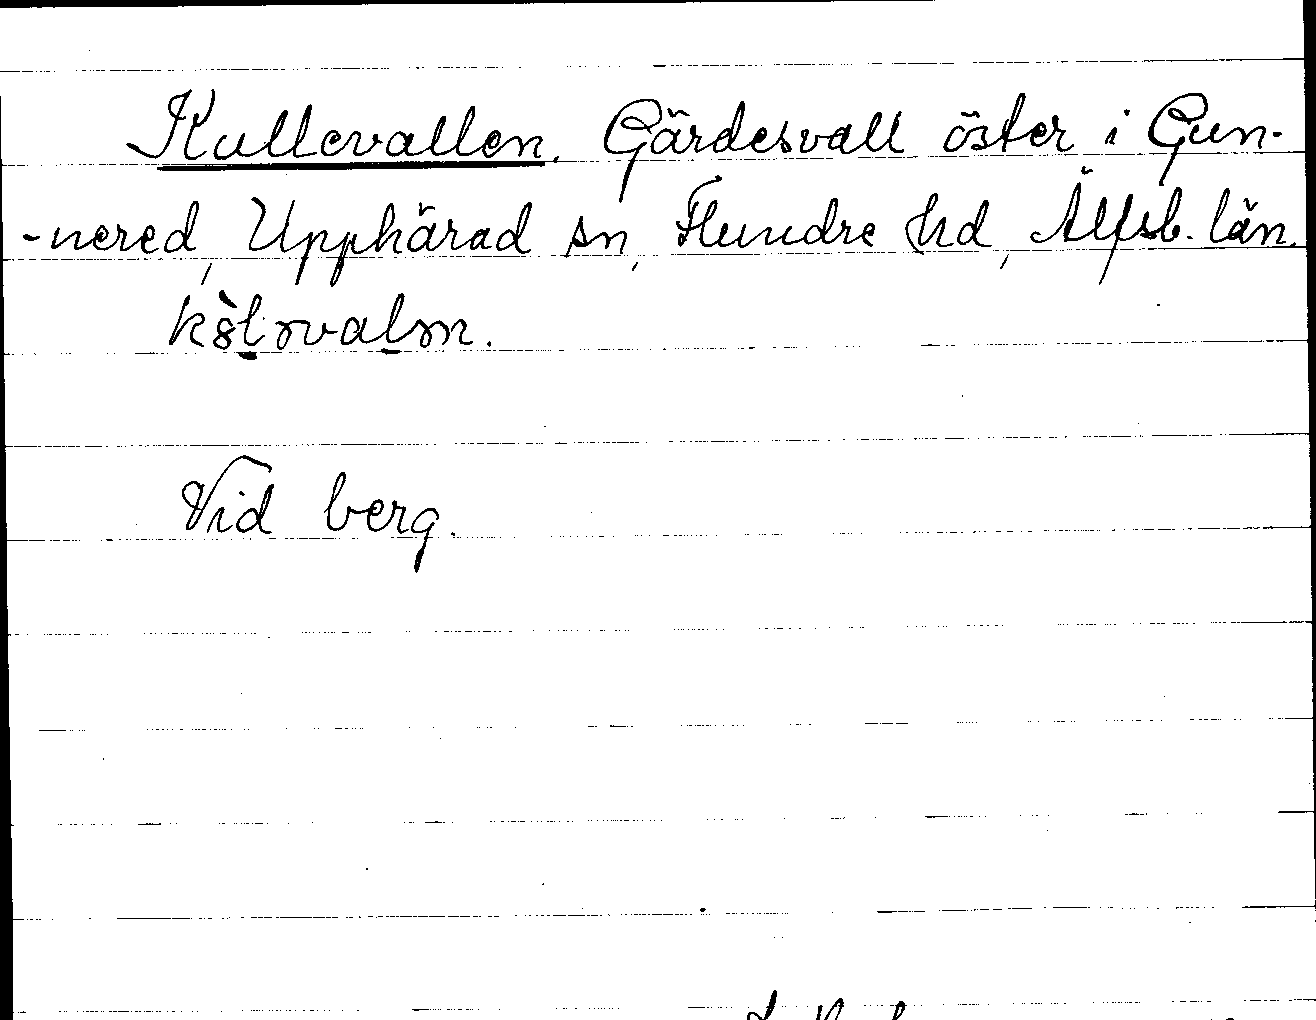 Kullevallen. Gärdesvall öster i Gun-
-nered, Upphärad sn, Flundre hd, Älfsb. län.
Vid berg.